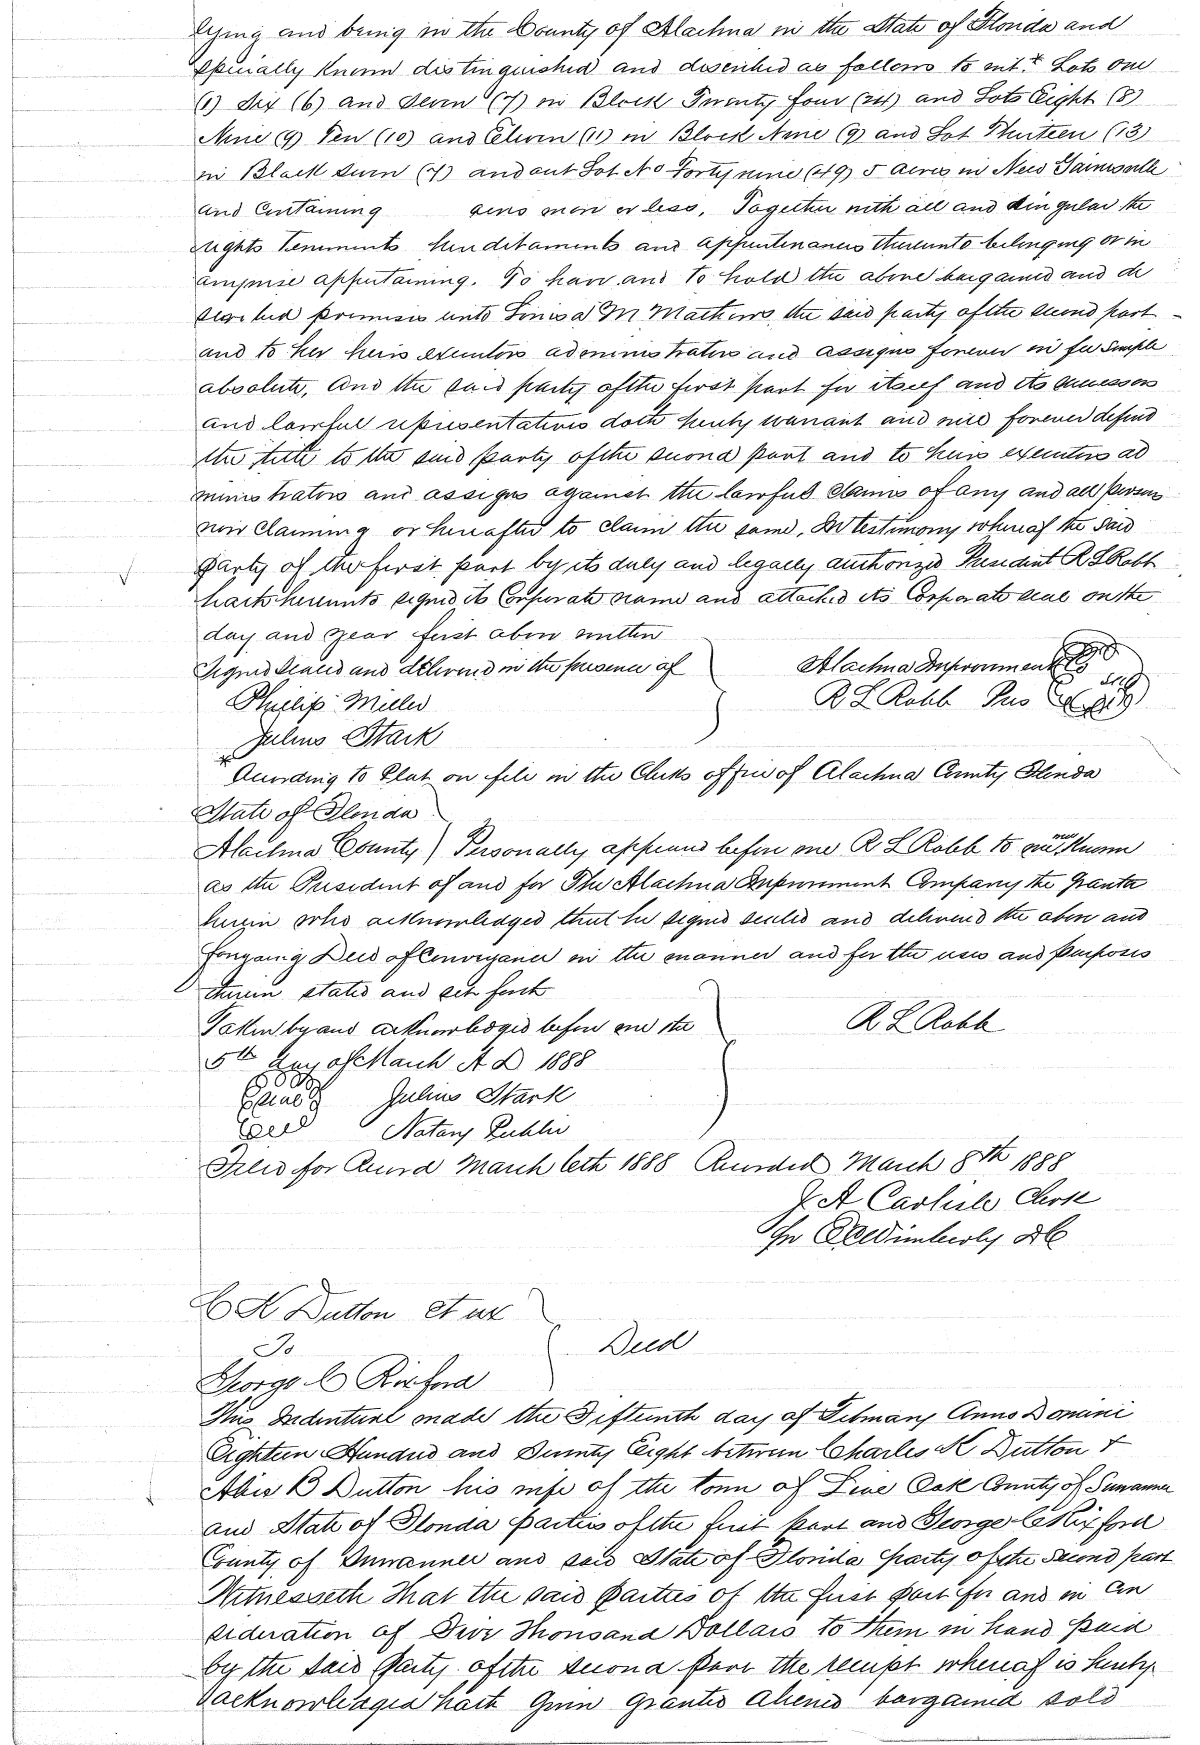 lying and being in the County of Alachua in the State of Florida and
specially known distinguished and described as follows to wit * Lots one
(1) Six (6) and Seven (7) in Block Twenty four (24) and Lots Eight (8)
Nine (9) Ten (10) and Eleven (11) in Block Nine (9) and Lot Thirteen (13)
in Block Seven (7) and out Lot No Forty nine (49) 5 acres in New Gainesville
and Containing acres more or less. Together with all and Singular the
rights tenements hereditaments and appurtenances thereunto belonging or in
anywise appertaining. To have and to hold the above bargained and de
scribed premises unto Louisa M Mathews, the said party of the second part
and to her heirs executors administrators and assigns forever in fee simple
absolute, And the said party of the first part for itself and its successors
and lawful representatives doth hereby warrant and will forever defend
the title to the said party of the second part and to heirs executors ad
ministrators and assigns against the lawful claims of any and all persons
now claiming or hereafter to claim the same. In testimony whereof the said
party of the first part by its duly and legally authorized President R L Robb
hath hereunto signed its Corporate name and attached its Corporate seal on the
day and year first above written
Signed Sealed and delivered in the presence of Alachua Improvement Co
Philip Miller R L Robb Pres
Julius Stark
* According to Plat on file in the Clerks office of Alachua County Florida
State of Florida
Alachua County ) Personally appeared before me R L Robb to me well Known
as the President of and for The Alachua Improvement Company the Grantor
herein who acknowledged that he signed sealed and delivered the above and
foregoing Deed of Conveyance in the manner and for the uses and purposes
therein stated and set forth
Taken by and acknowledged before me the R L Robb
5th day of March A D 1888
Seal Julius Stark
Notary Public
Filed for Record March 6th 1888 Recorded March 8th 1888
J A Carlisle Clerk
Wimberly D C
C K Dutton et ux
To Deed
George C Rixford
This Indenture made the Fifteenth day of February Anno Domini
Eighteen Hundred and Seventy Eight between Charles K Dutton &
Alice B Dutton his wife of the town of Live Oak County of Suwannee
and State of Florida parties of the first part and George C Rixford
County of Suwannee and said State of Florida party of the second part
Witnesseth that the said parties of the first part for and in con
sideration of Five Thousand Dollars to them in hand paid
by the said party of the second part the receipt whereof is hereby
acknowledged hath given granted aliened bargained sold